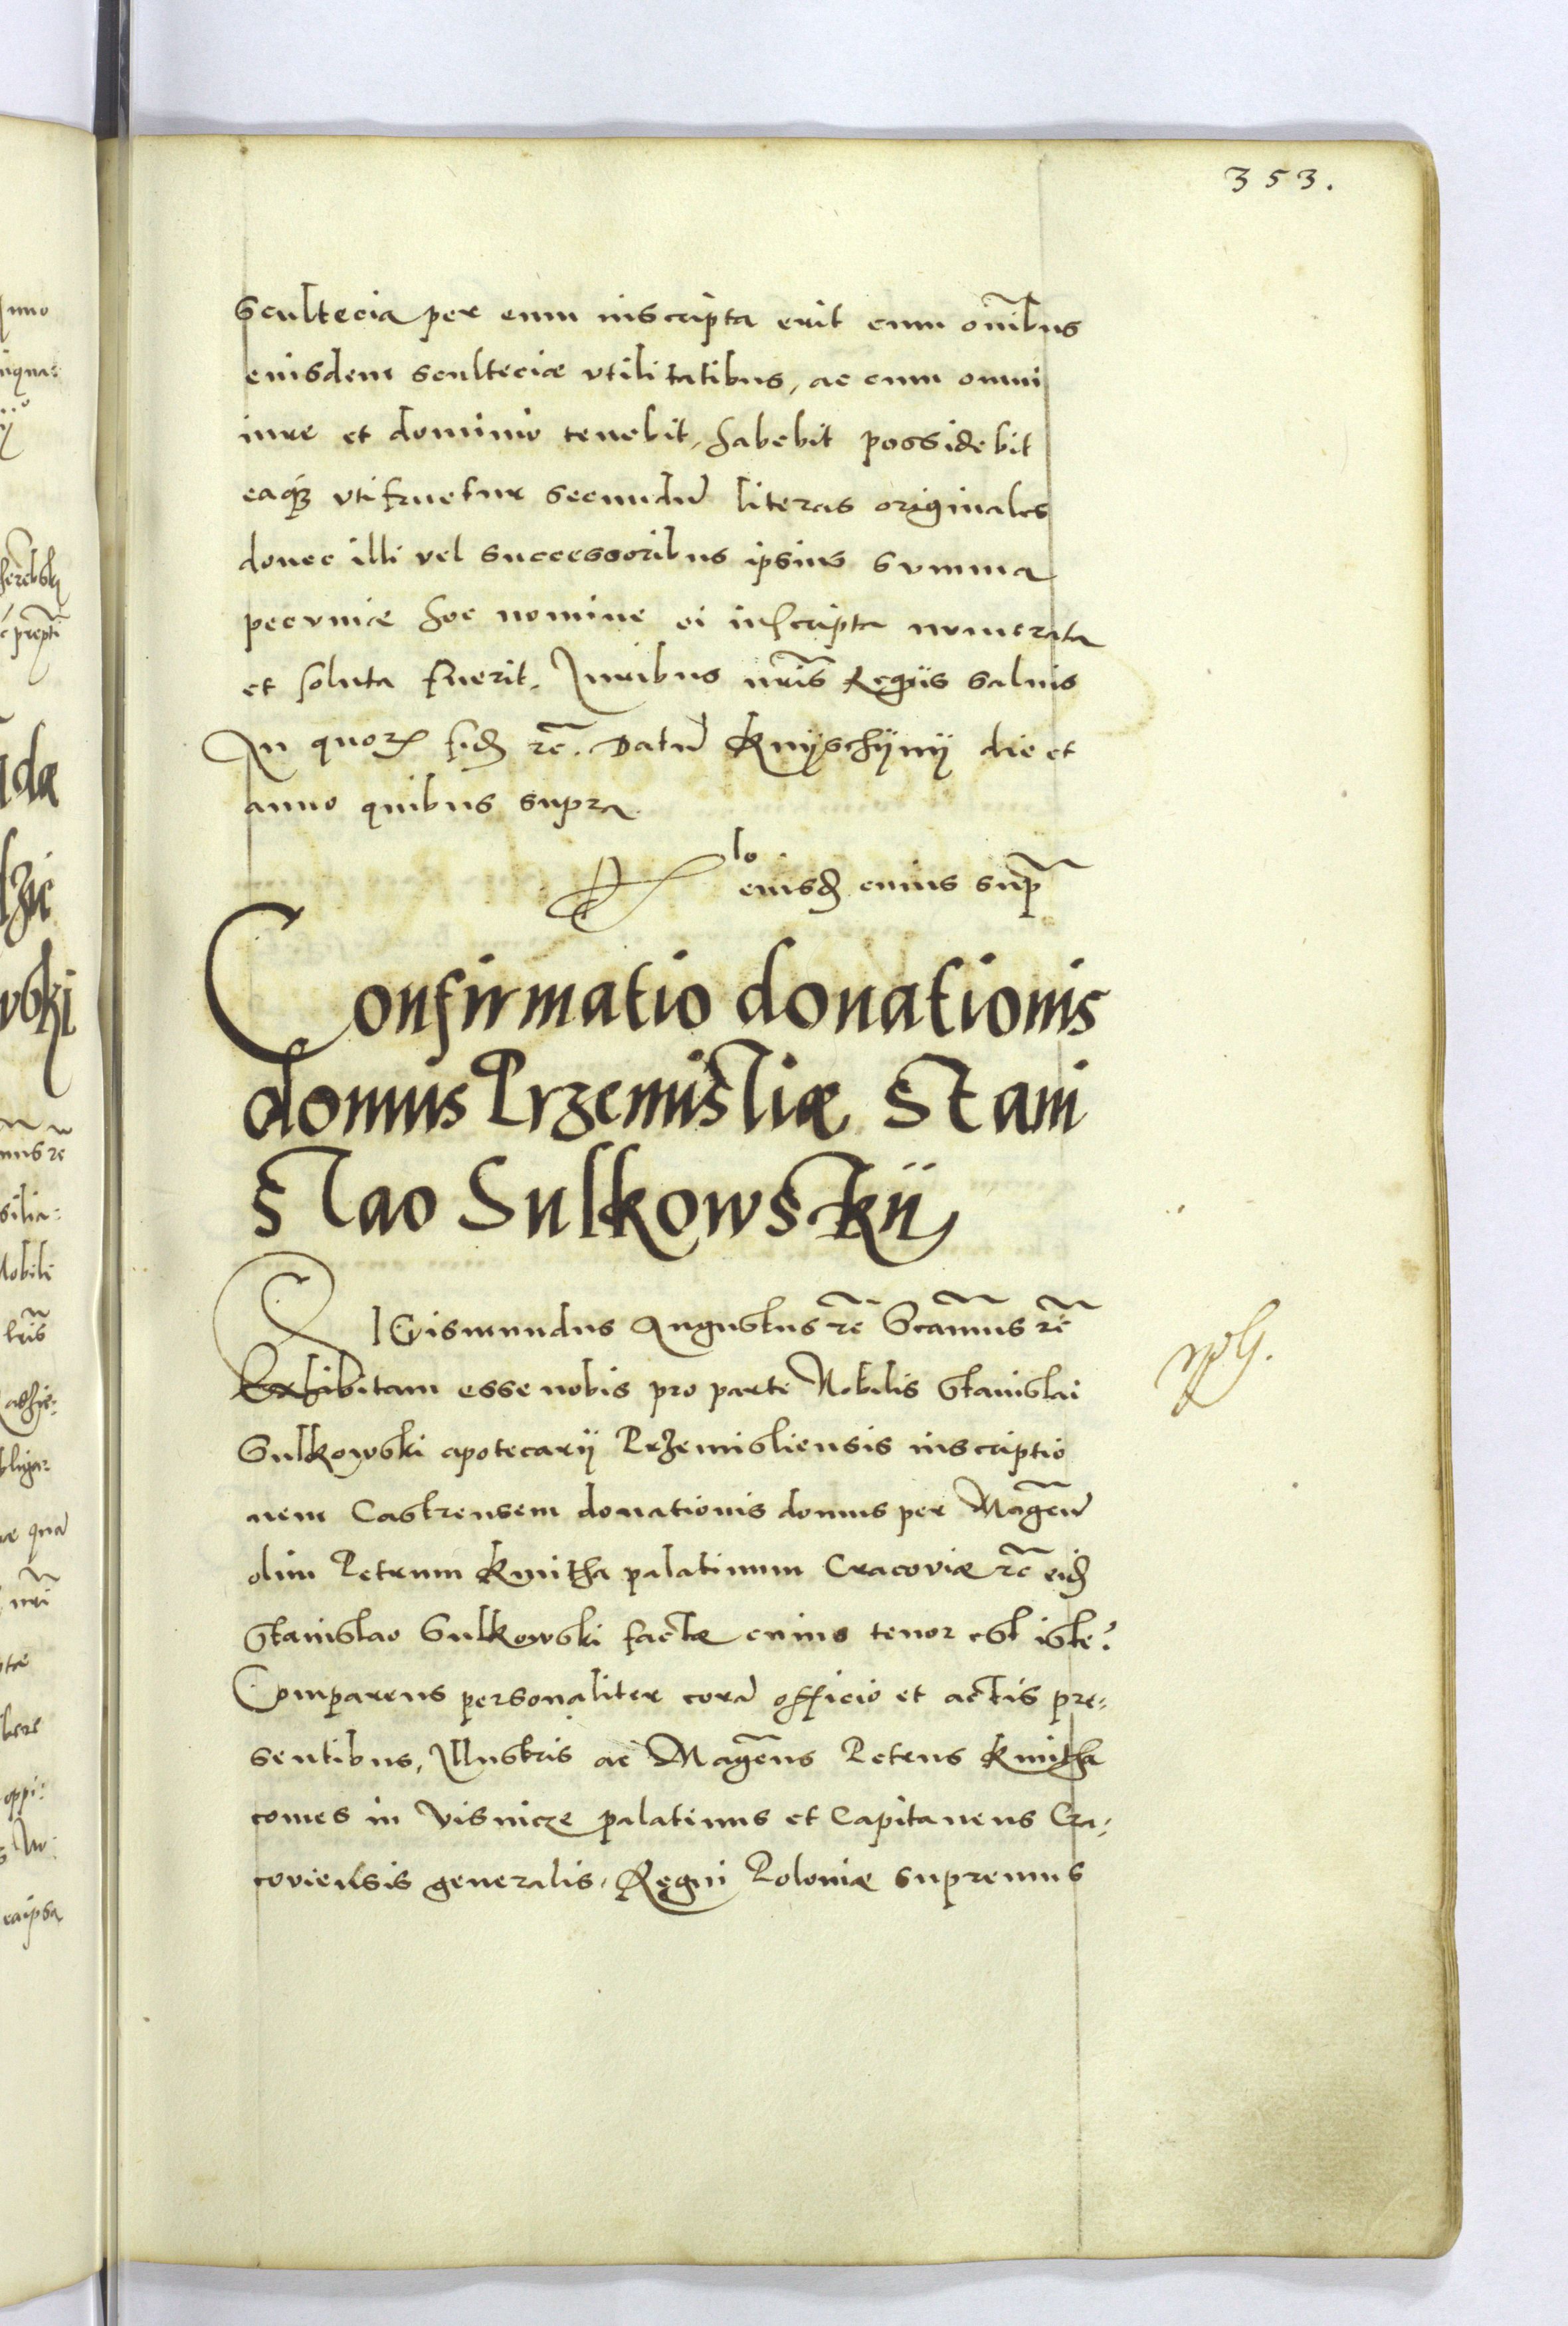 353.
Scultecia per eum inscripta erit cum oĩbus
eiusdem sculteciæ vtilitatibus, ac cum omni
iure et dominio tenebit, habebit possidebit
eaqꝫ vtifruetur secundũ literas originales
donec illi vel successoribus ipsius summa
pecuniæ hoc nomine ei inscripta numerata
et soluta fuerit, Iuribus nr̃is Regiis saluis
In quorꝫ fidẽ rc̃. Datũ Knÿschÿnÿ die et
anno quibus supra.
Rlo eiusdẽ cuius supr̃
Confirmatio donationis
domus Przemisliæ Stani
slao Sulkowskii
SIGismundus Augustus rc̃ Scamus rc̃
Exhibitam esse nobis pro parte Nobilis Stanislai
Sulkowski apotecarij Przemisliensis inscriptio
nem Castrensem donationis domus per Magcũ
olim Petrum Kmitha palatinum Cracoviæ rc̃ eidẽ
Stanislao Sulkowski factæ cuius tenor est iste:
Comparens personaliter corã officio et actis pre:
sentibus, Illustris ac Magcus Petrus Kmitha
comes in Visnicze palatinus et Capitaneus Cra:
coviensis generalis, Regni Poloniæ supremus